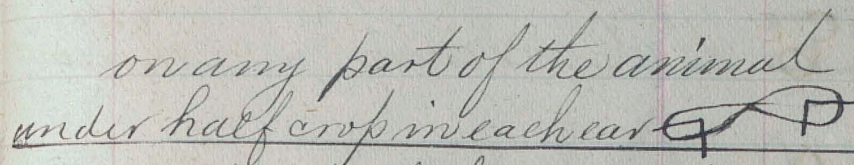 on any part of the animal
under half crop in each ear